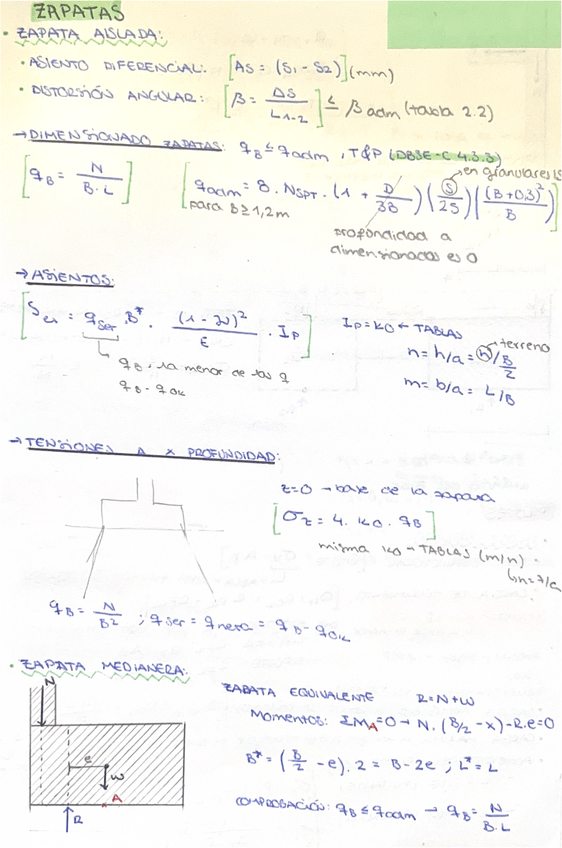 ZAPATAS
• ZAPATA AISLADA:
• ASIENTO DIFERENCIAL: [ΔS = (S1 - S2)] (mm)
• DISTORSIÓN ANGULAR: [β = ΔS / L1-2] ≤ β adm (tabla 2.2)
→ DIMENSIONADO ZAPATAS: qB ≤ qadm, T&P (DBSE-C 4.3.3)
[qB = N / B·L]
[qadm = 8 · NSPT · (1 + D/3B) (S/25) ((B+0,3)/B)²]
en granulares
para B ≥ 1,2m
profundidad a
dimensionados es 0
→ ASIENTOS:
[Sei = qser B* · (1-ν)²/E · Ip]
Ip = K0 ← TABLAS
n = h/a = h / B/2
terreno
m = b/a = L/B
qB, la menor de las q
qB - q0k
→ TENSIONES A x PROFUNDIDAD:
z=0 → base de la zapata
[σz = 4 · K0 · qB]
misma K0 → TABLAS (m/n)
qB = N/B² ; qser = qneta = qB - q0k
• ZAPATA MEDIANERA:
N
e
W
A
R
ZAPATA EQUIVALENTE R=N+W
Momentos: ΣMA=0 → N · (B/2 - x) - R·e=0
B* = (B/2 - e) · 2 = B - 2e ; L* = L
COMPROBACIÓN: qB ≤ qadm → qB = N / B·L